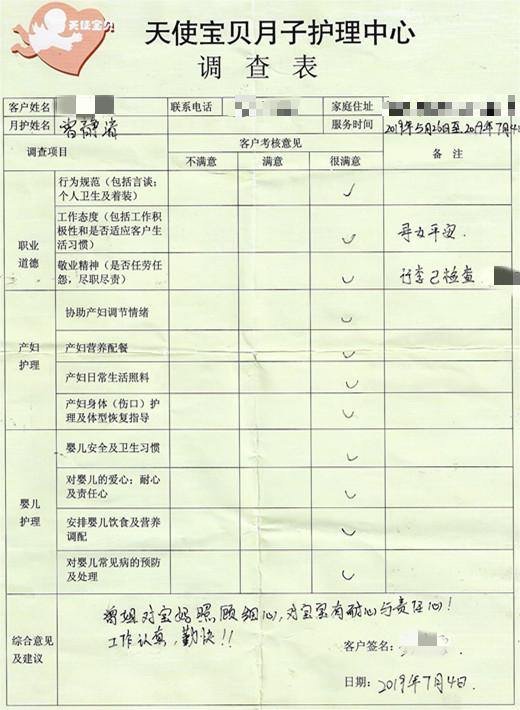 天使宝贝
天使宝贝月子护理中心
调查表
客户姓名 联系电话 家庭住址
月护姓名 服务时间 2019年5月26日至2019年7月4
调查项目 客户考核意见 备 注
不满意 满意 很满意
职业道德
行为规范（包括言谈；个人卫生及着装）
工作态度（包括工作积极性和是否适应客户生活习惯）
敬业精神（是否任劳任怨，尽职尽责） 行李已检查
产妇护理
协助产妇调节情绪
产妇营养配餐
产妇日常生活照料
产妇身体（伤口）护理及体型恢复指导
婴儿护理
婴儿安全及卫生习惯
对婴儿的爱心；耐心及责任心
安排婴儿饮食及营养调配
对婴儿常见病的预防及处理
综合意见及建议
曾姐对宝妈照顾细心，对宝宝有耐心与责任心！
工作认真，勤快！！
客户签名：
日期：2019年7月4日.